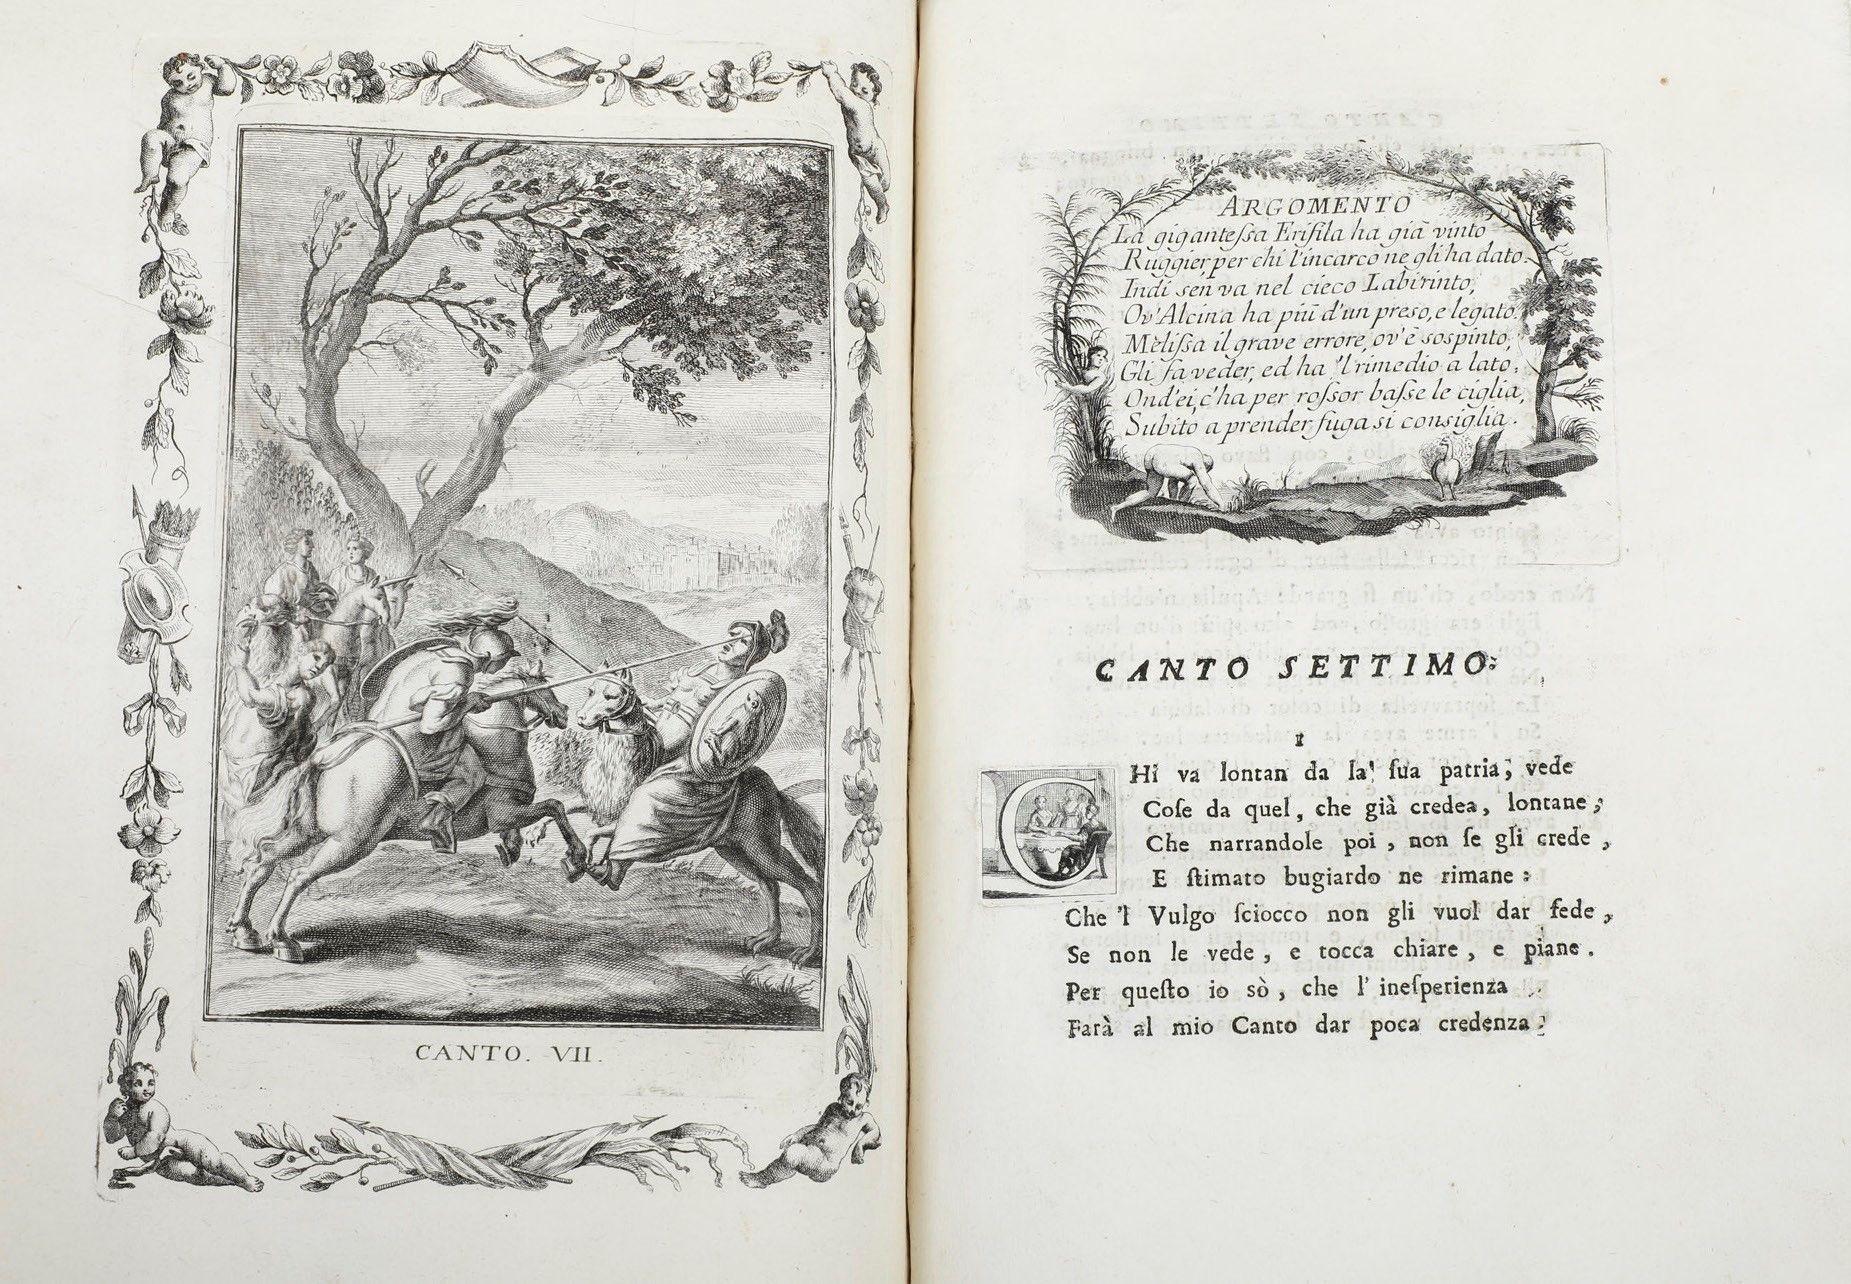 CANTO. VII.
ARGOMENTO
La giganteſsa Erifila ha già vinto
Ruggier, per chi l'incarco ne gli ha dato.
Indi sen va nel cieco Labirinto,
Ov'Alcina ha più d'un preso, e legato.
Meliſsa il grave errore, ov'è sospinto,
Gli fa veder, ed ha 'l rimedio a lato;
Ond'ei, c'ha per roſsor baſse le ciglia,
Subito a prender fuga si consiglia.
CANTO SETTIMO.
I
CHi va lontan da la ſua patria, vede
Coſe da quel, che già credea, lontane;
Che narrandole poi, non ſe gli crede,
E ſtimato bugiardo ne rimane:
Che 'l Vulgo ſciocco non gli vuol dar fede,
Se non le vede, e tocca chiare, e piane.
Per queſto io sò, che l' ineſperienza
Farà al mio Canto dar poca credenza.